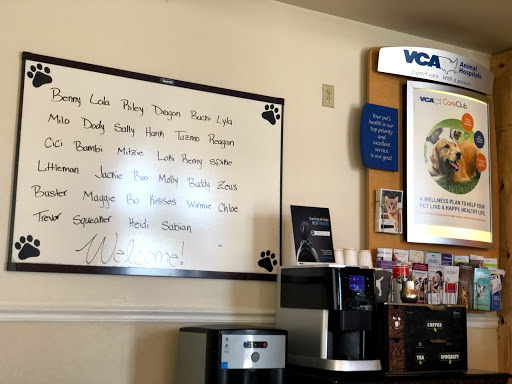 Benny Lola Riley Dragon Buckii Lyla
Milo Dody Sally Hank Tazmo Reagan
Cici Bambi Mitzie Loki Remy Spike
Littleman Jackie Boo Molly Buddy Zeus
Buster Maggie Bo Kisses Winnie Chloe
Trevor Squeaker Heidi Sabian
Welcome!
Your pet's
health is our top
priority and
excellent
service
is our goal
VCA Animal
Hospitals
Expert care. With a passion.
VCA CareClub
A WELLNESS PLAN TO HELP YOUR
PET LIVE A HAPPY, HEALTHY LIFE.
COFFEE
TEA SPECIALTY